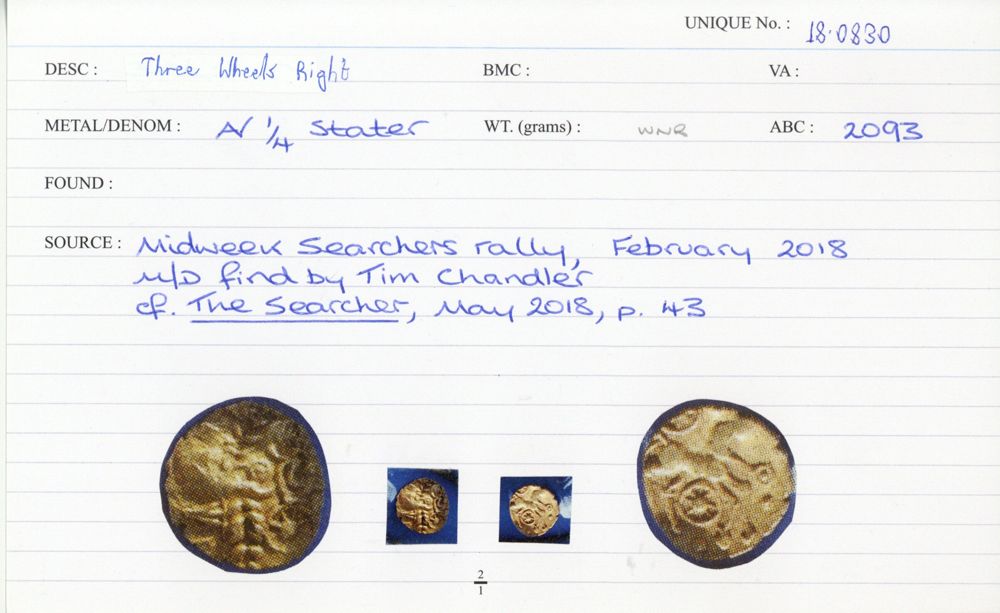 UNIQUE No. : 18.0830
DESC : Three Wheels Right BMC : VA :
METAL/DENOM : AV 1/4 Stater WT. (grams) : WNR ABC : 2093
FOUND :
SOURCE : Midweek Searchers rally, February 2018
M/D find by Tim Chandler
cf. The Searcher, May 2018, p. 43
2
1